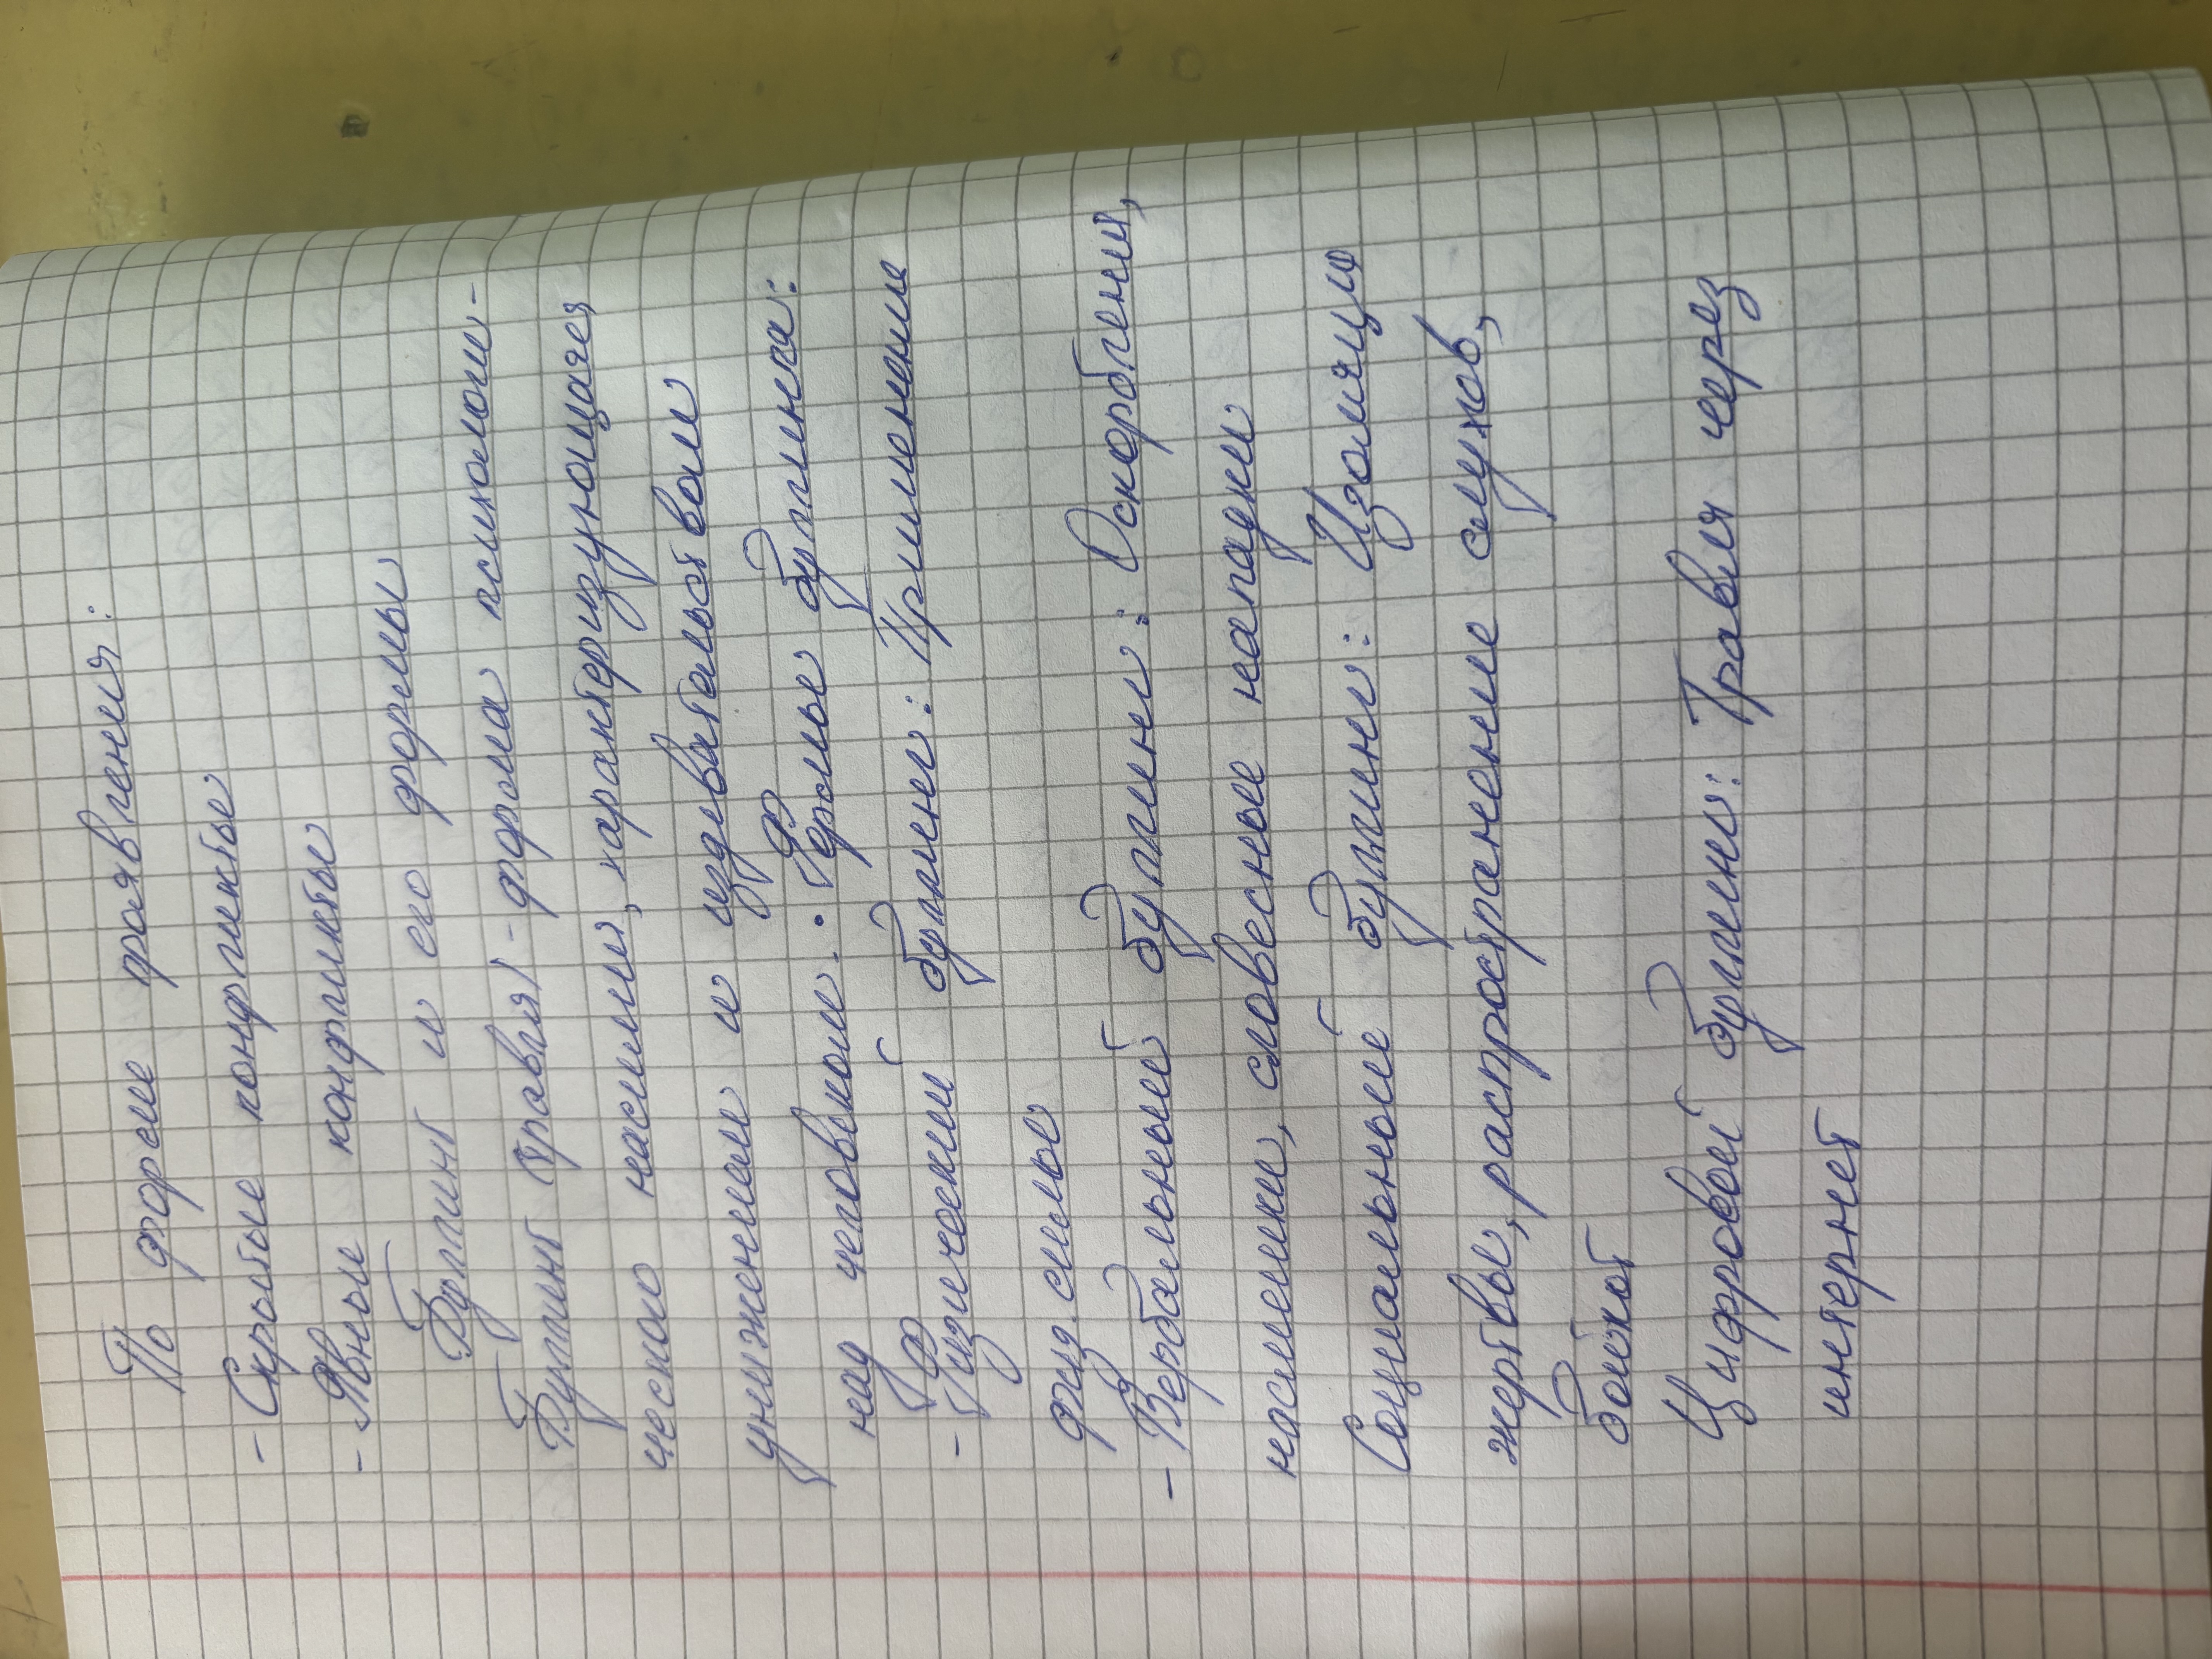 По форме проявления:
- Скрытые конфликты
- Явные конфликты
Буллинг и его формы
Буллинг (травля) - форма психологи-
ческого насилия, характеризующаяся
унижением и издевательством
над человеком. Формы буллинга:
- Физический буллинг: Применение
физ. силы
- Вербальный буллинг: Оскорбления,
насмешки, словесные нападки
Социальный буллинг: Изоляция
жертвы, распространение слухов,
бойкот
Цифровой буллинг: Травля через
интернет